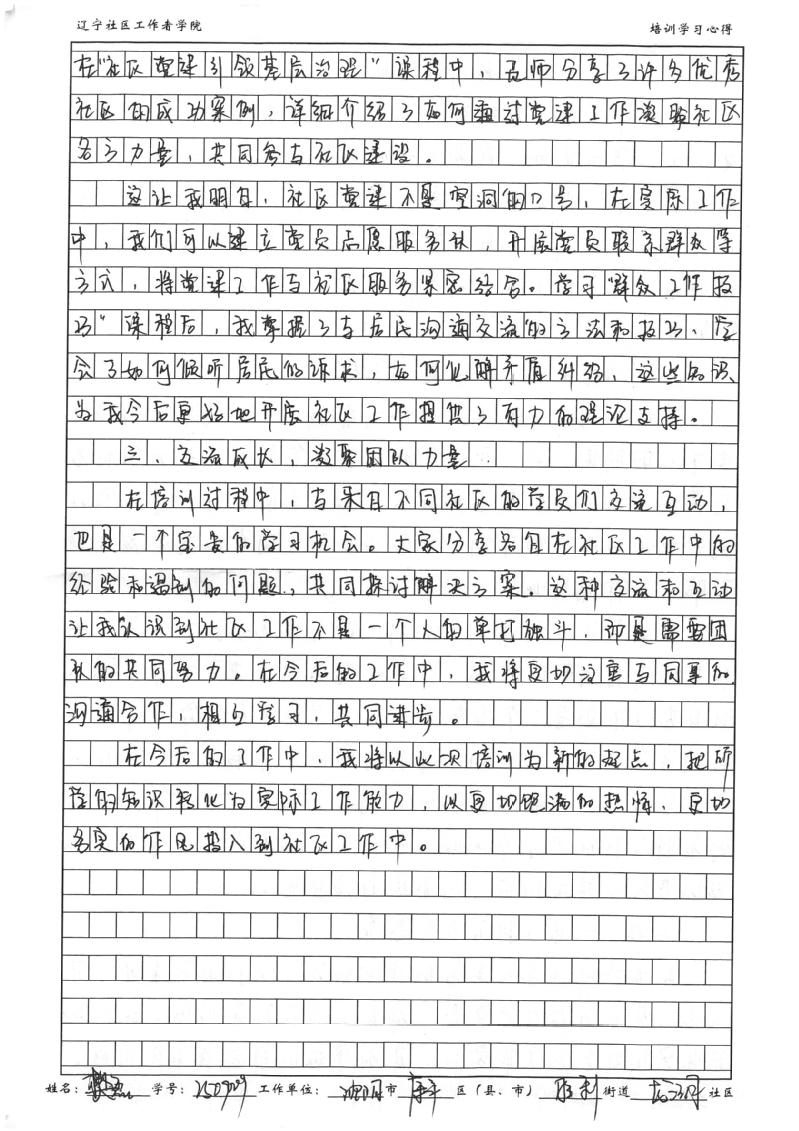 辽宁社区工作者学院
培训学习心得
在“社区党建引领基层治理”课程中，老师分享了许多优秀
社区的成功案例，详细介绍了如何通过党建工作凝聚社区
各方力量，共同参与社区建设。
这让我明白，社区党建不是空洞的口号，在实际工作
中，我们可以建立党员志愿服务队，开展党员联系群众等
方式，将党建工作与社区服务紧密结合。学习“群众工作技
巧”课程后，我掌握了与居民沟通交流的方法和技巧、学
会了如何倾听居民的诉求，如何化解矛盾纠纷，这些知识
为我今后更好地开展社区工作提供了有力的理论支持。
三、交流成长，凝聚团队力量
在培训过程中，与来自不同社区的学员们交流互动，
也是一个宝贵的学习机会。大家分享各自在社区工作中的
经验和遇到的问题，共同探讨解决方案。这种交流和互动
让我认识到社区工作不是一个人的单打独斗，而是需要团
队的共同努力。在今后的工作中，我将更加注重与同事的
沟通合作，相互学习，共同进步。
在今后的工作中，我将以此次培训为新的起点，把所
学的知识转化为实际工作能力，以更加饱满的热情，更加
务实的作风投入到社区工作中。
姓名： 学号： 工作单位：沈阳市 康平 区（县、市） 胜利 街道 社区